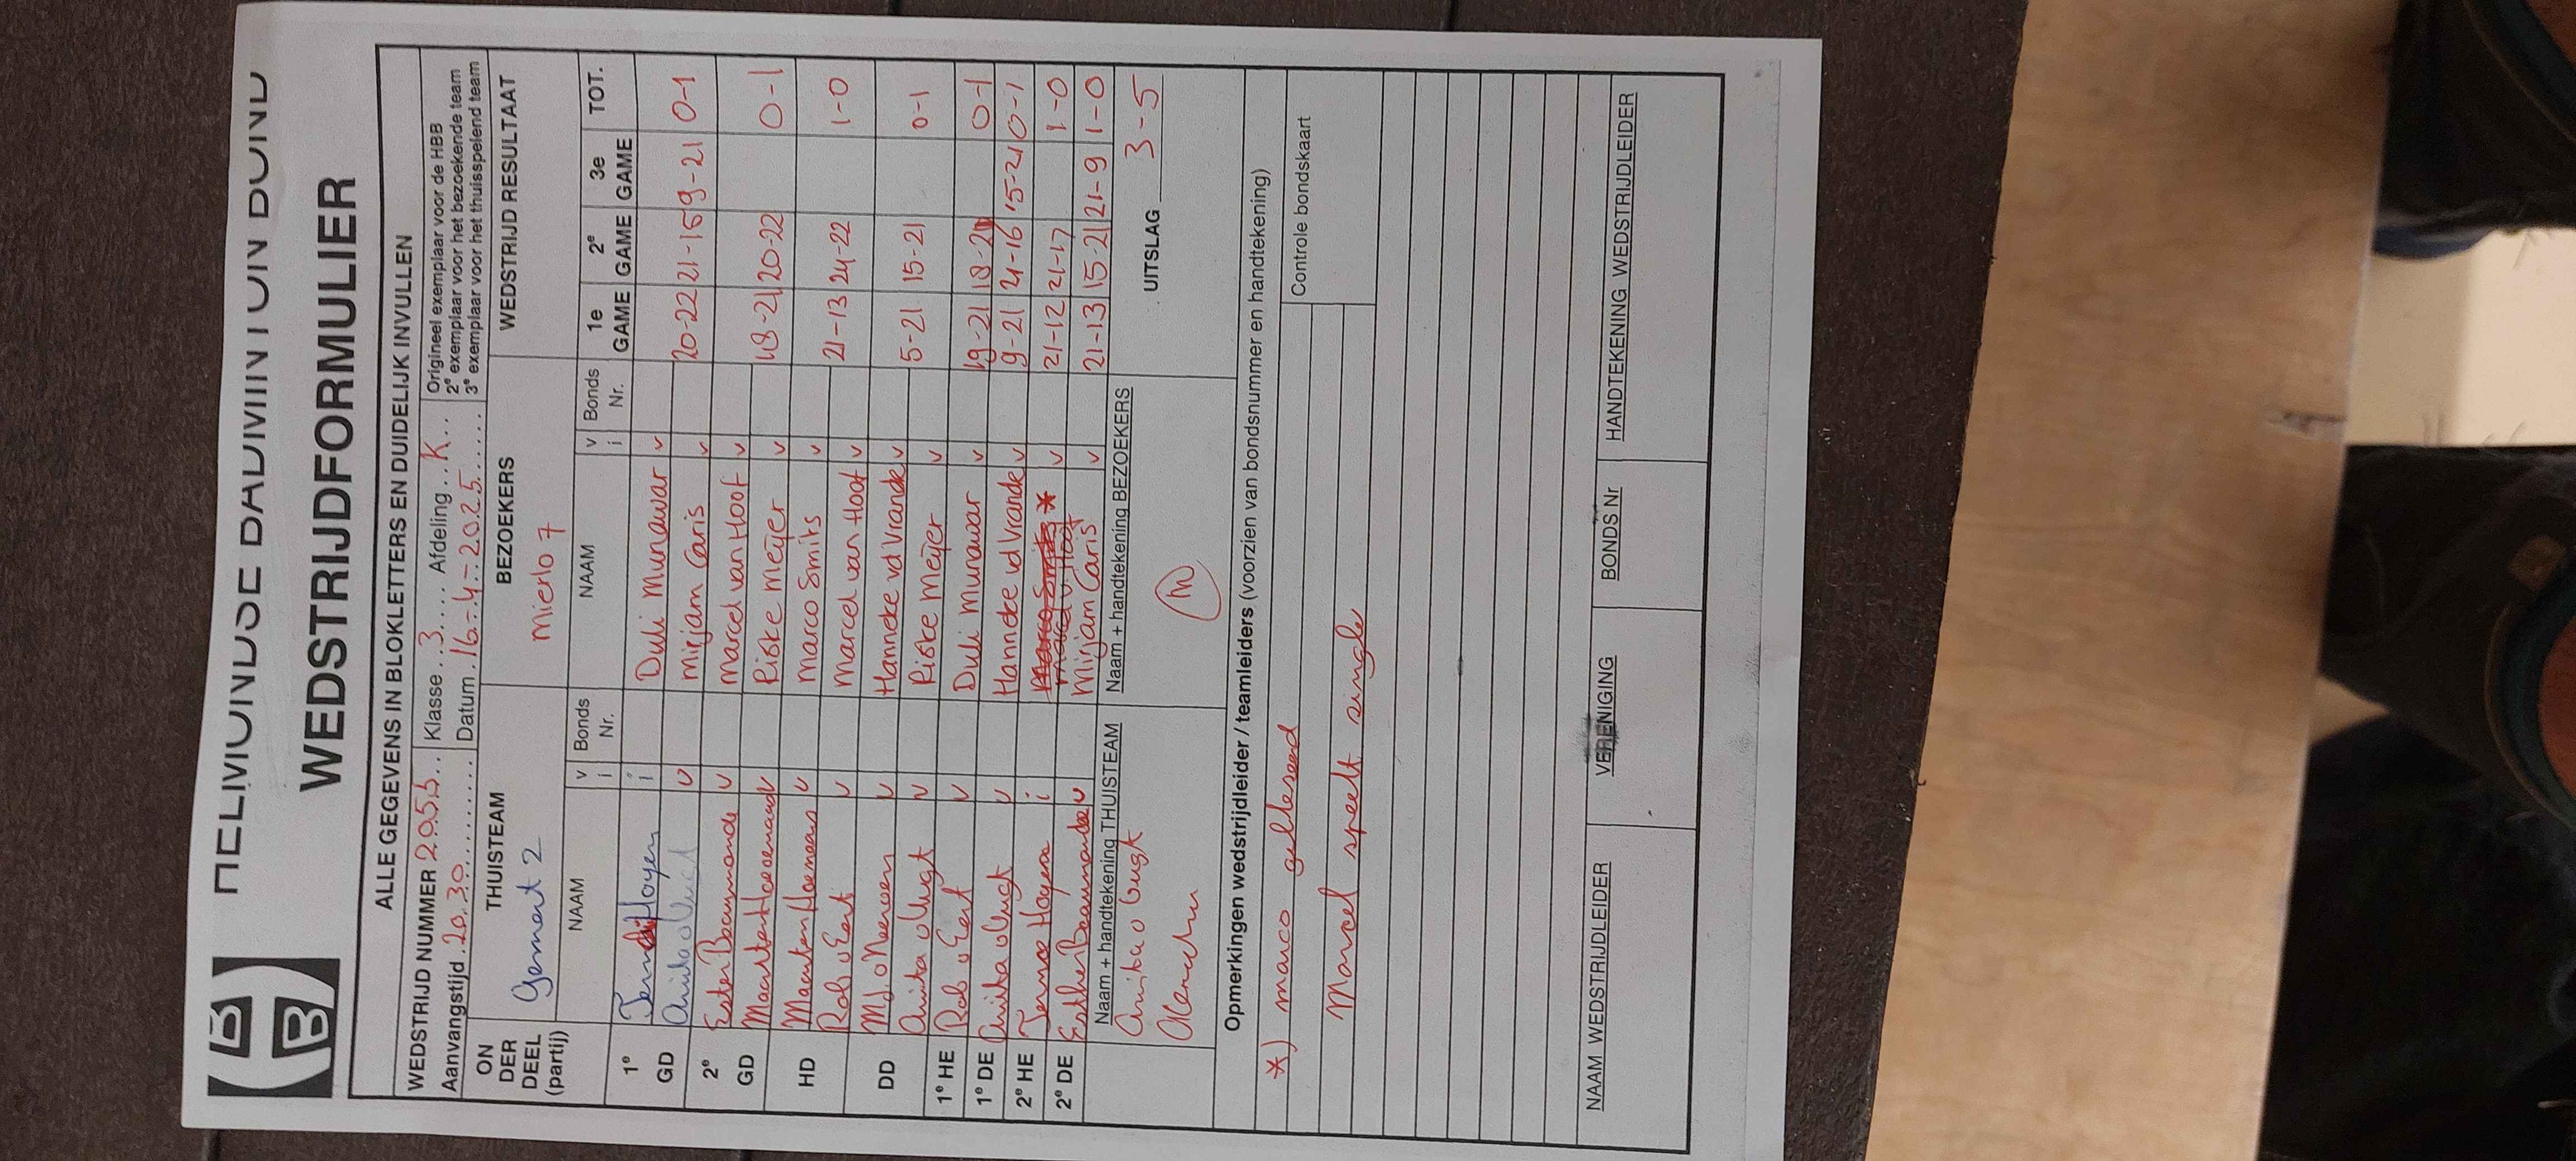 HELMONDSE BADMINTON BOND
WEDSTRIJDFORMULIER
ALLE GEGEVENS IN BLOKLETTERS EN DUIDELIJK INVULLEN
WEDSTRIJD NUMMER 2055 Klasse 3 Afdeling K Origineel exemplaar voor de HBB
Aanvangstijd 20.30 Datum 16-4-2025 2e exemplaar voor het bezoekende team
3e exemplaar voor het thuisspelend team
ON DER DEEL (partij) THUISTEAM BEZOEKERS WEDSTRIJD RESULTAAT
Gemert 2 Mierlo 7
NAAM v i Bonds Nr. NAAM v i Bonds Nr. 1e GAME 2e GAME 3e GAME TOT.
1e i Duli Munawar v
GD Anita v Mirjam Caris v 20-22 21-15 9-21 0-1
2e Ester v Marcel van Hoof v
GD Maarten v Riske Meijer v 18-21 20-22 0-1
HD Maarten v Marco Smits v
Rob v Eert v Marcel van Hoof v 21-13 24-22 1-0
DD v Hanneke vd Vrande v
Anita v Riske Meijer v 5-21 15-21 0-1
1e HE Rob v Eert v Duli Munawar v 19-21 18-21 0-1
1e DE Anita v Hanneke vd Vrande v 9-21 21-16 15-21 0-1
2e HE i Marco Smits Marcel v Hoof * v 21-12 21-17 1-0
2e DE Esther v Mirjam Caris v 21-13 15-21 21-9 1-0
Naam + handtekening THUISTEAM Naam + handtekening BEZOEKERS UITSLAG 3-5
Anita
Opmerkingen wedstrijdleider / teamleiders (voorzien van bondsnummer en handtekening)
*) marco geblesseerd Controle bondskaart
Marcel speelt single
NAAM WEDSTRIJDLEIDER VERENIGING BONDS Nr HANDTEKENING WEDSTRIJDLEIDER